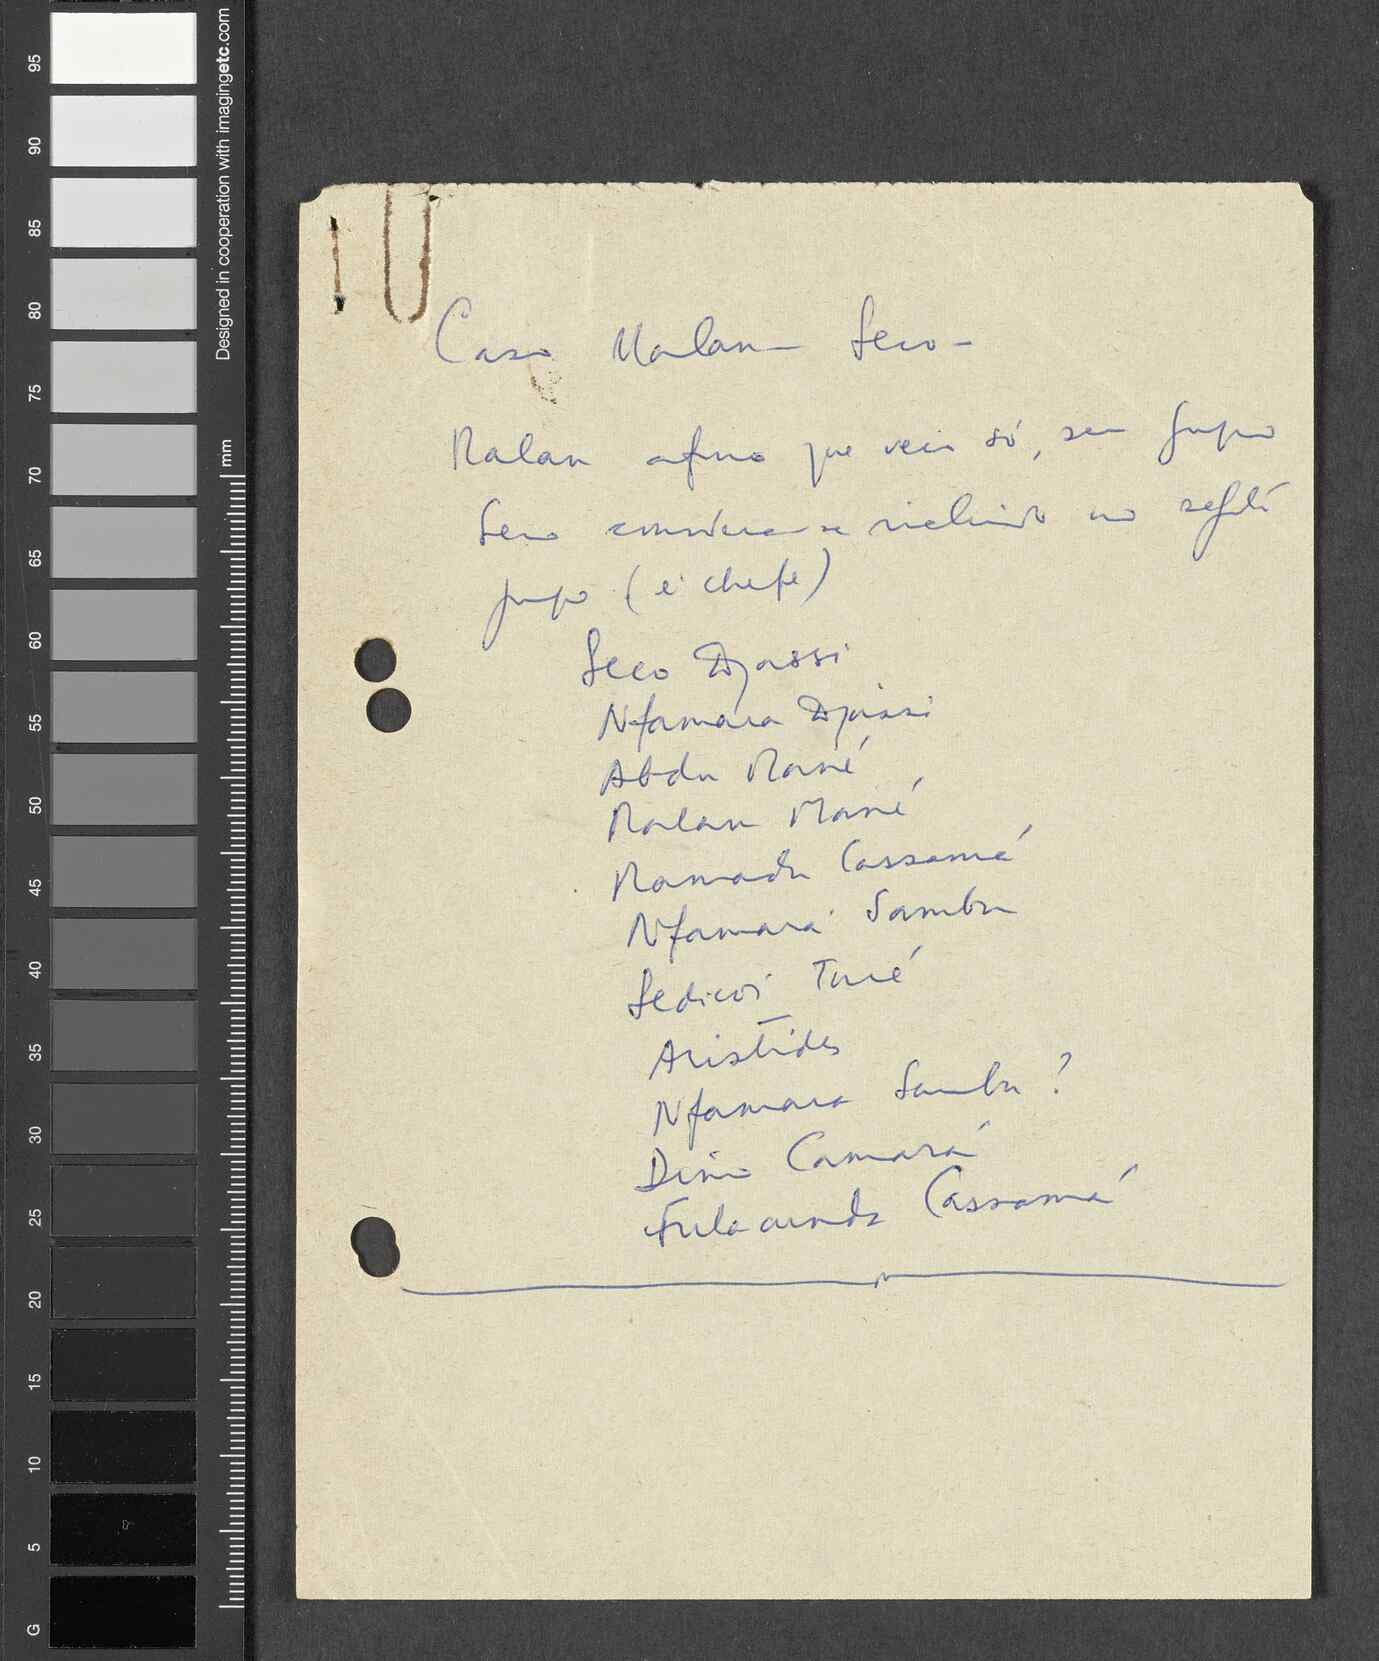 Caso Malan Seco -
Malan afirma que veio só, sem grupo
Seco considera-se incluído no
grupo (é chefe)
Seco Djassi
Nfamara Djassi
Abdu Mané
Malan Mané
Mamadu Cassamá
Nfamara Sambu
Sedicoi Turé
Aristides
Nfamara Sambu ?
Dino Camará
Fulacunda Cassamá
Designed in cooperation with imagingetc.com
mm
95
90
85
80
75
70
65
60
55
50
45
40
35
30
25
20
15
10
5
G